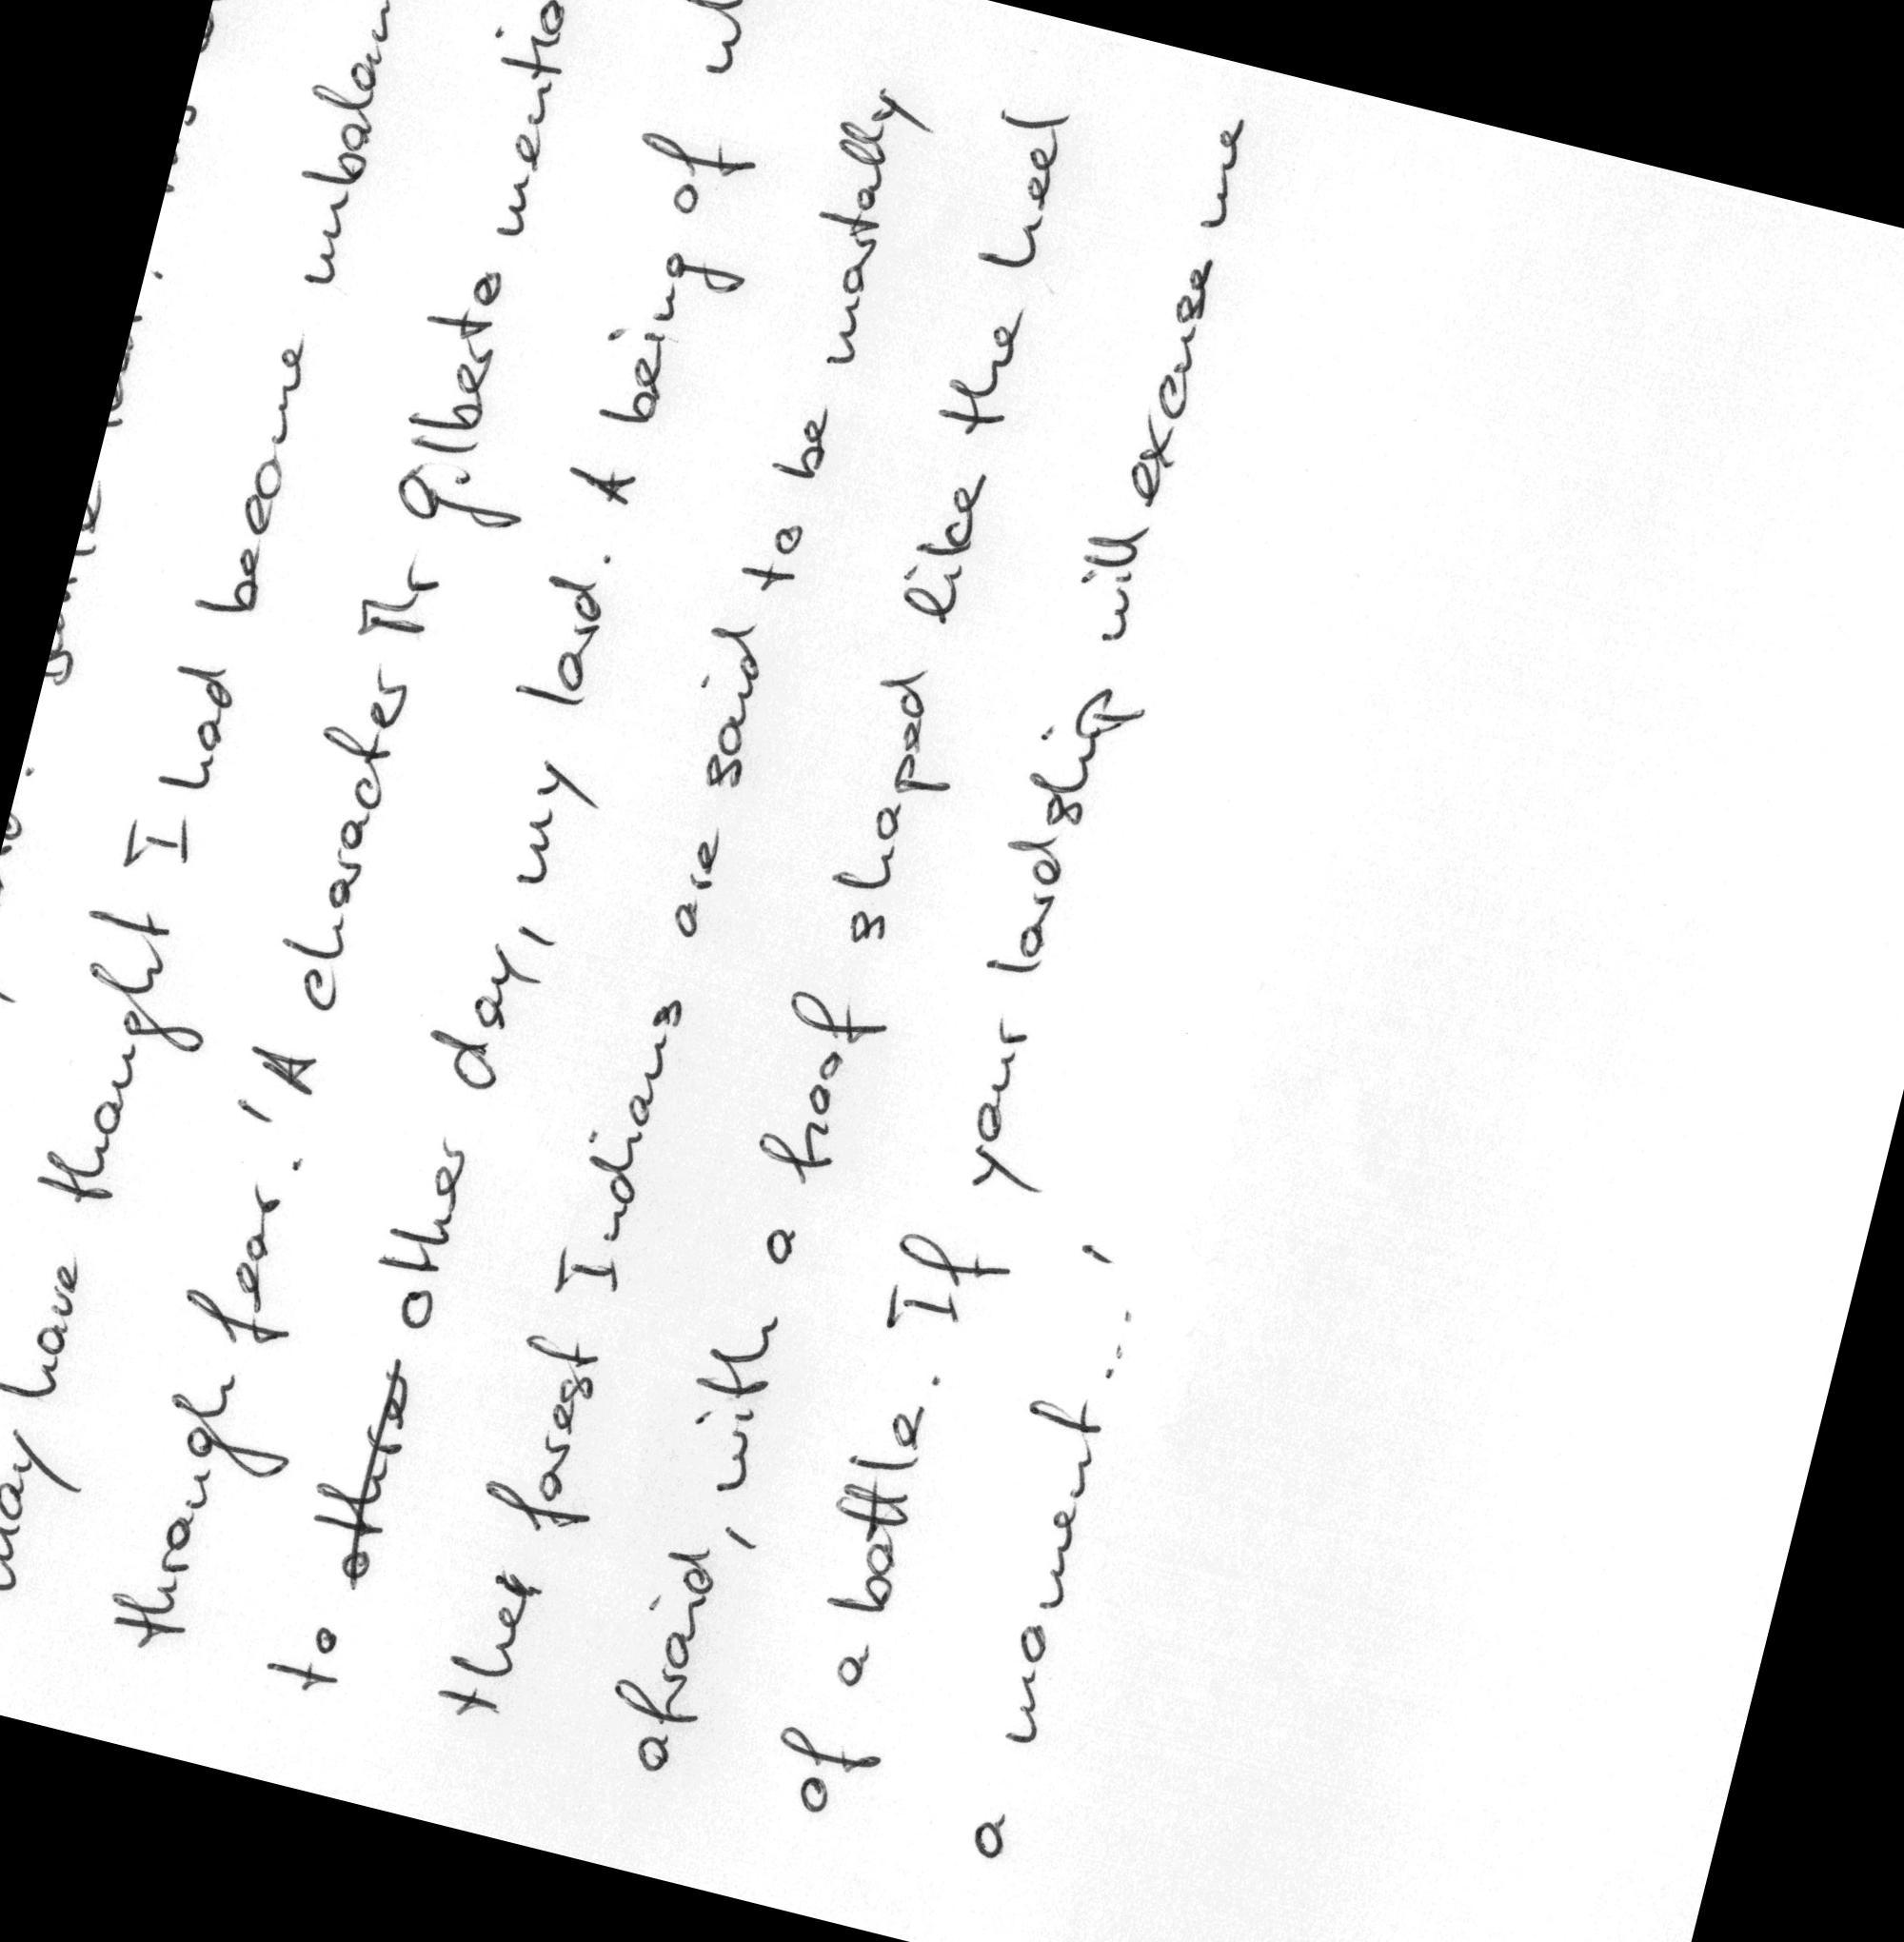 may have thought I had become unbalan
through fear.' 'A character Mr Gilberto mentio
to other day, my lord. A being of
the forest Indians are said to be mortally
afraid, with a hoof shaped like the heel
of a bottle. If your lordship will excuse me
a moment...'